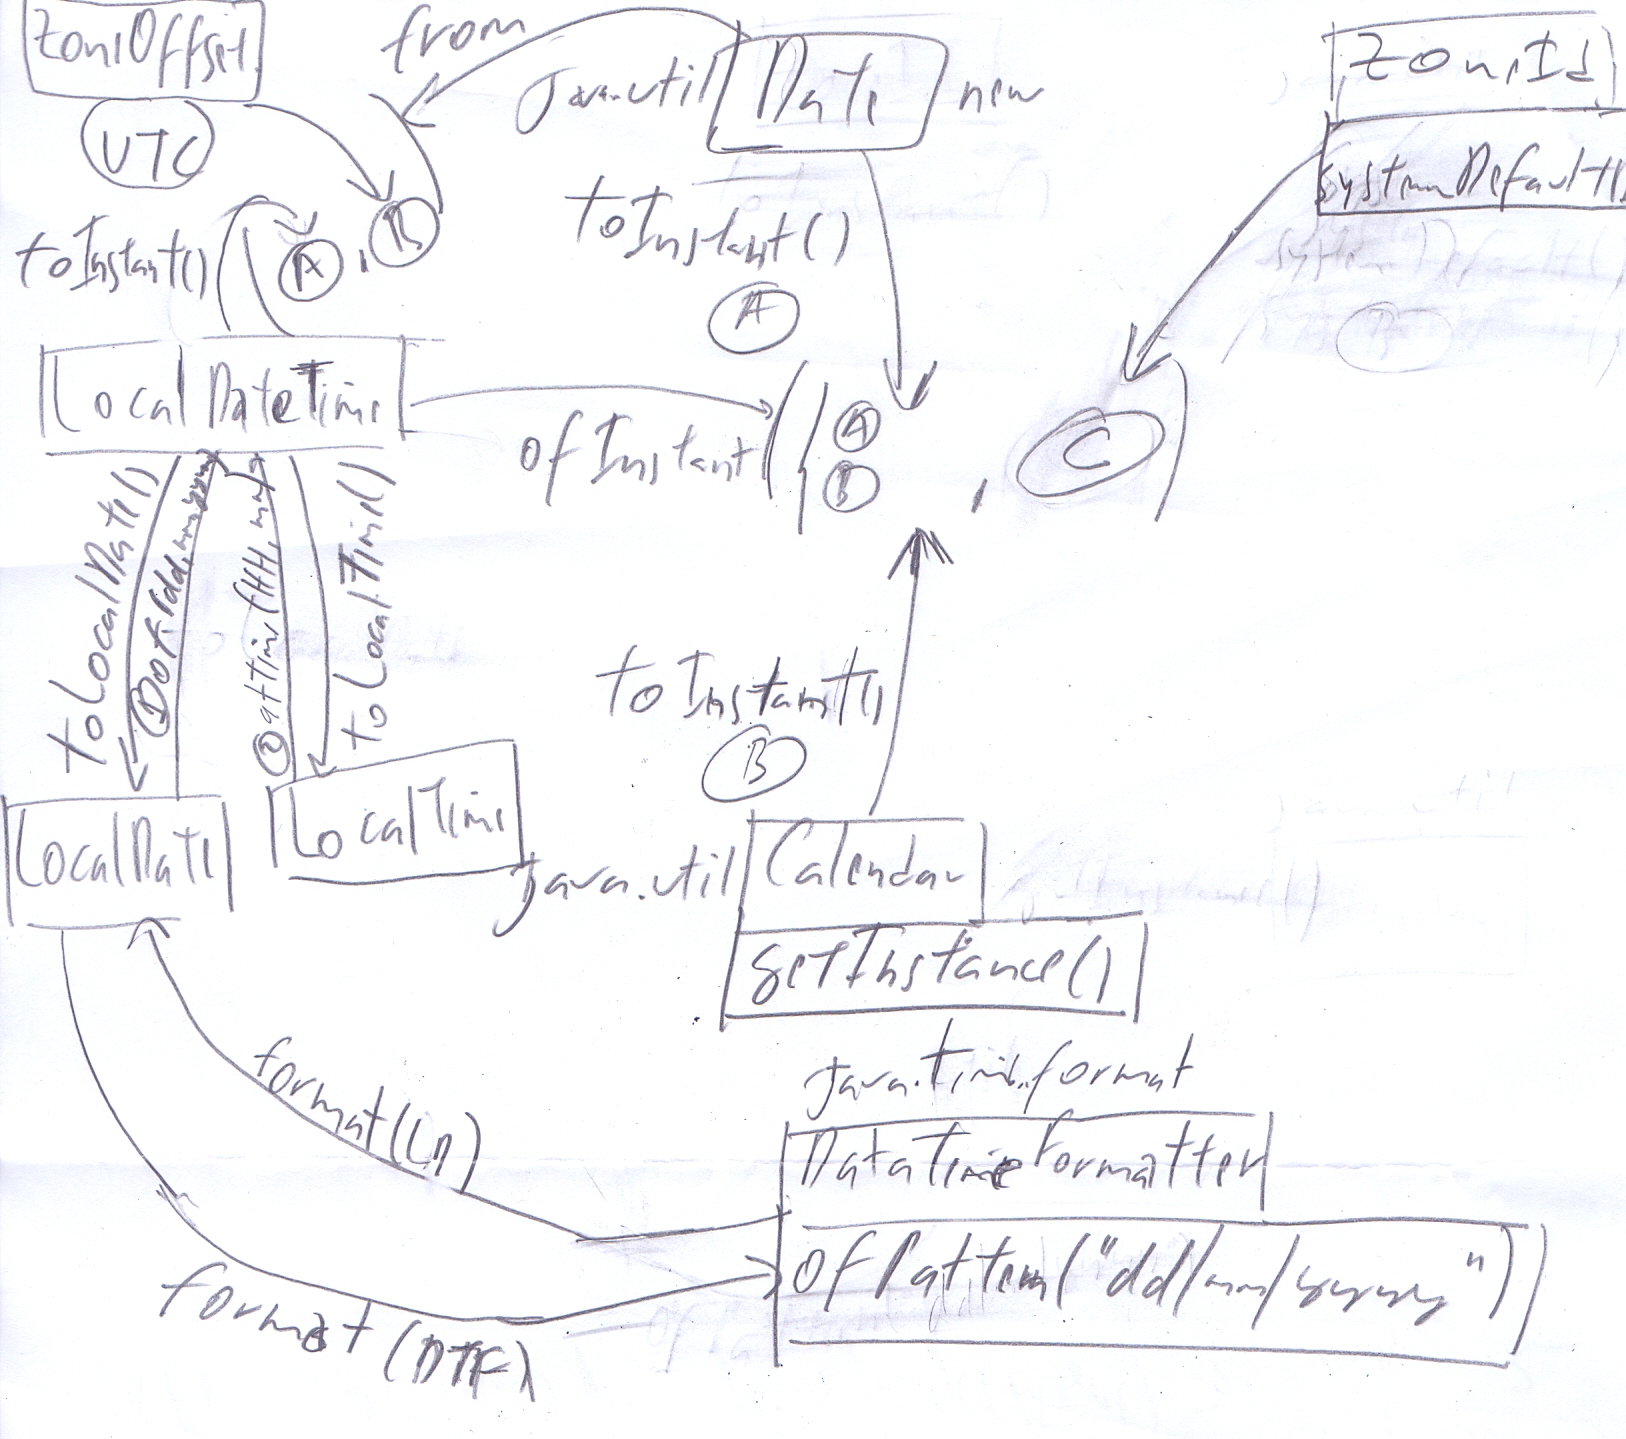 ZoneOffset
UTC
from
java.util Date new
ZoneId
systemDefault()
toInstant()
A, B
toInstant()
A
LocalDateTime
ofInstant(
A
B
, C )
toLocalDate()
① of(dd,mm,yyyy)
② atTime(HH,mm)
toLocalTime()
toInstant()
B
LocalDate
LocalTime
java.util Calendar
getInstance()
format(LD)
java.time.format
DataTimeFormatter
ofPattern("dd/mm/yyyy")
format(DTF)